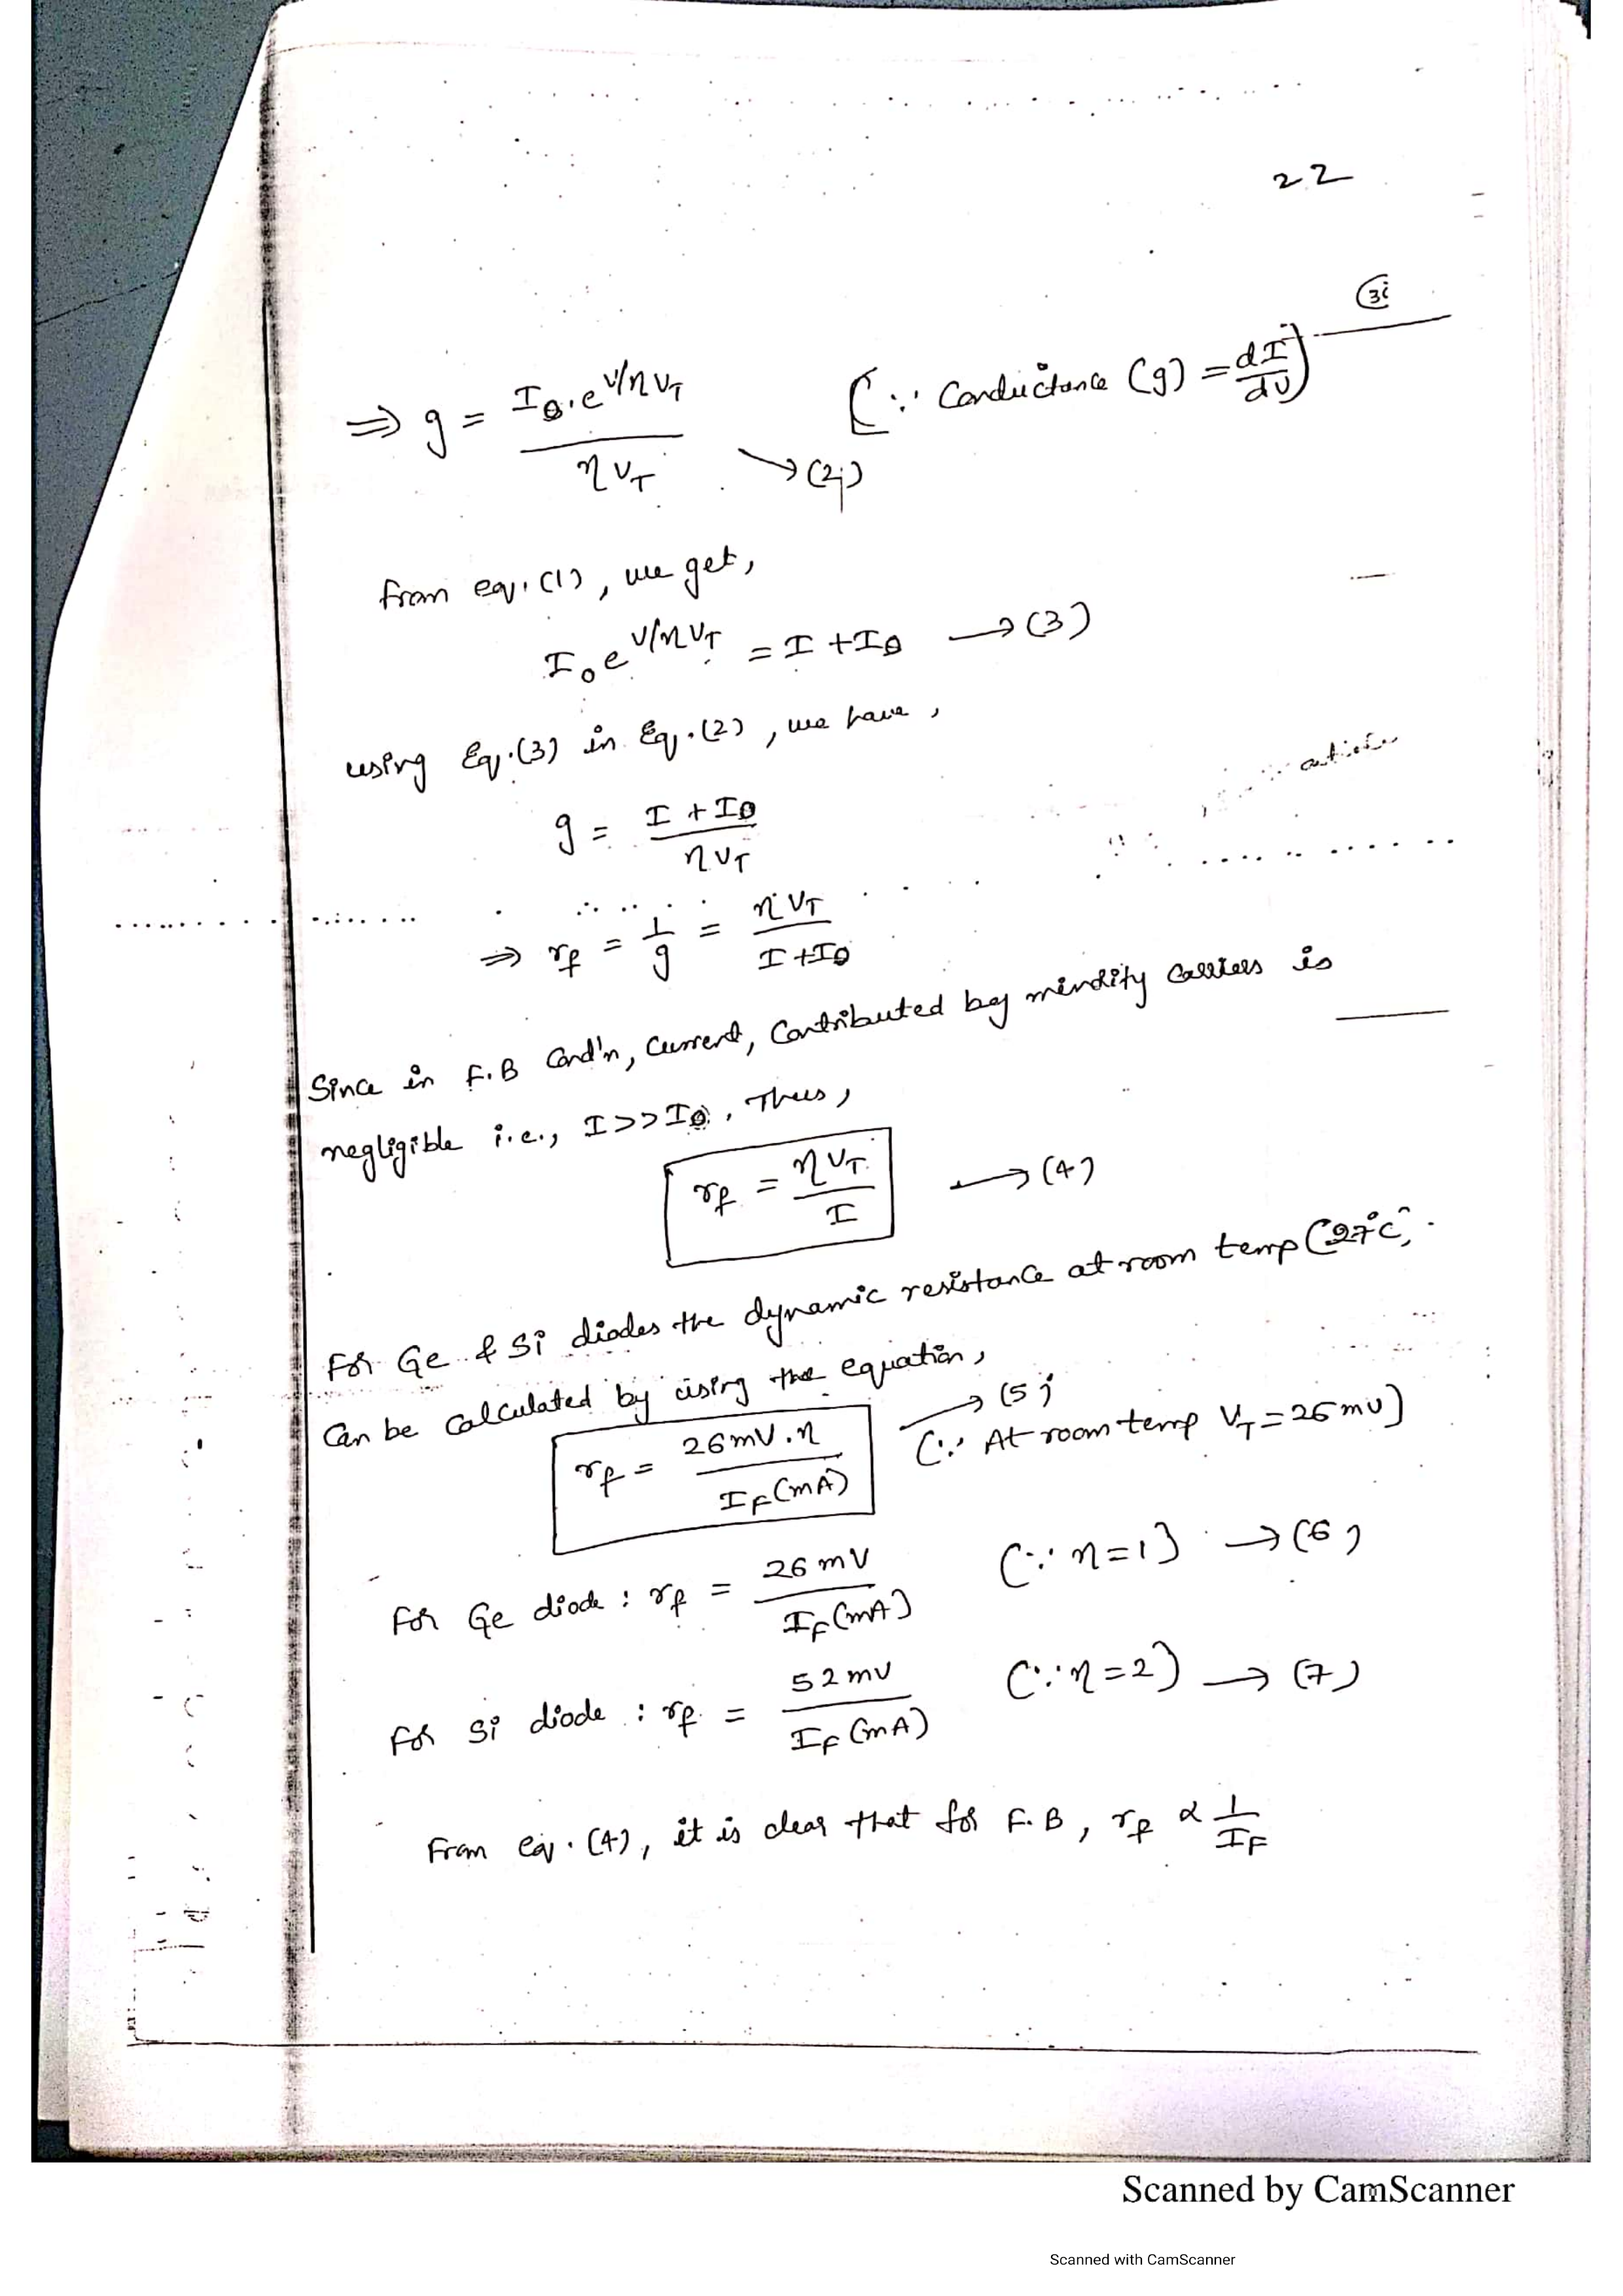 22
⇒ g = I₀.e^(V/ηV_T) / ηV_T →(2) [∵ Conductance (g) = dI/dV]
from eq.(1), we get,
I₀e^(V/ηV_T) = I + I₀ →(3)
using Eq.(3) in Eq.(2), we have,
g = (I + I₀) / ηV_T
⇒ r_f = 1/g = ηV_T / (I + I₀)
Since in F.B Cond'n, Current, Contributed by minority Carriers is
negligible i.e., I>>I₀, Thus,
r_f = ηV_T / I →(4)
For Ge & Si diodes the dynamic resistance at room temp (27°C)
Can be Calculated by using the equation,
r_f = 26mV.η / I_F(mA) →(5) (∵ At room temp V_T = 26mV)
For Ge diode : r_f = 26mV / I_F(mA) (∵ η=1) →(6)
For Si diode : r_f = 52mV / I_F(mA) (∵ η=2) →(7)
From eq.(4), it is clear that for F.B, r_f ∝ 1/I_F
Scanned by CamScanner
Scanned with CamScanner